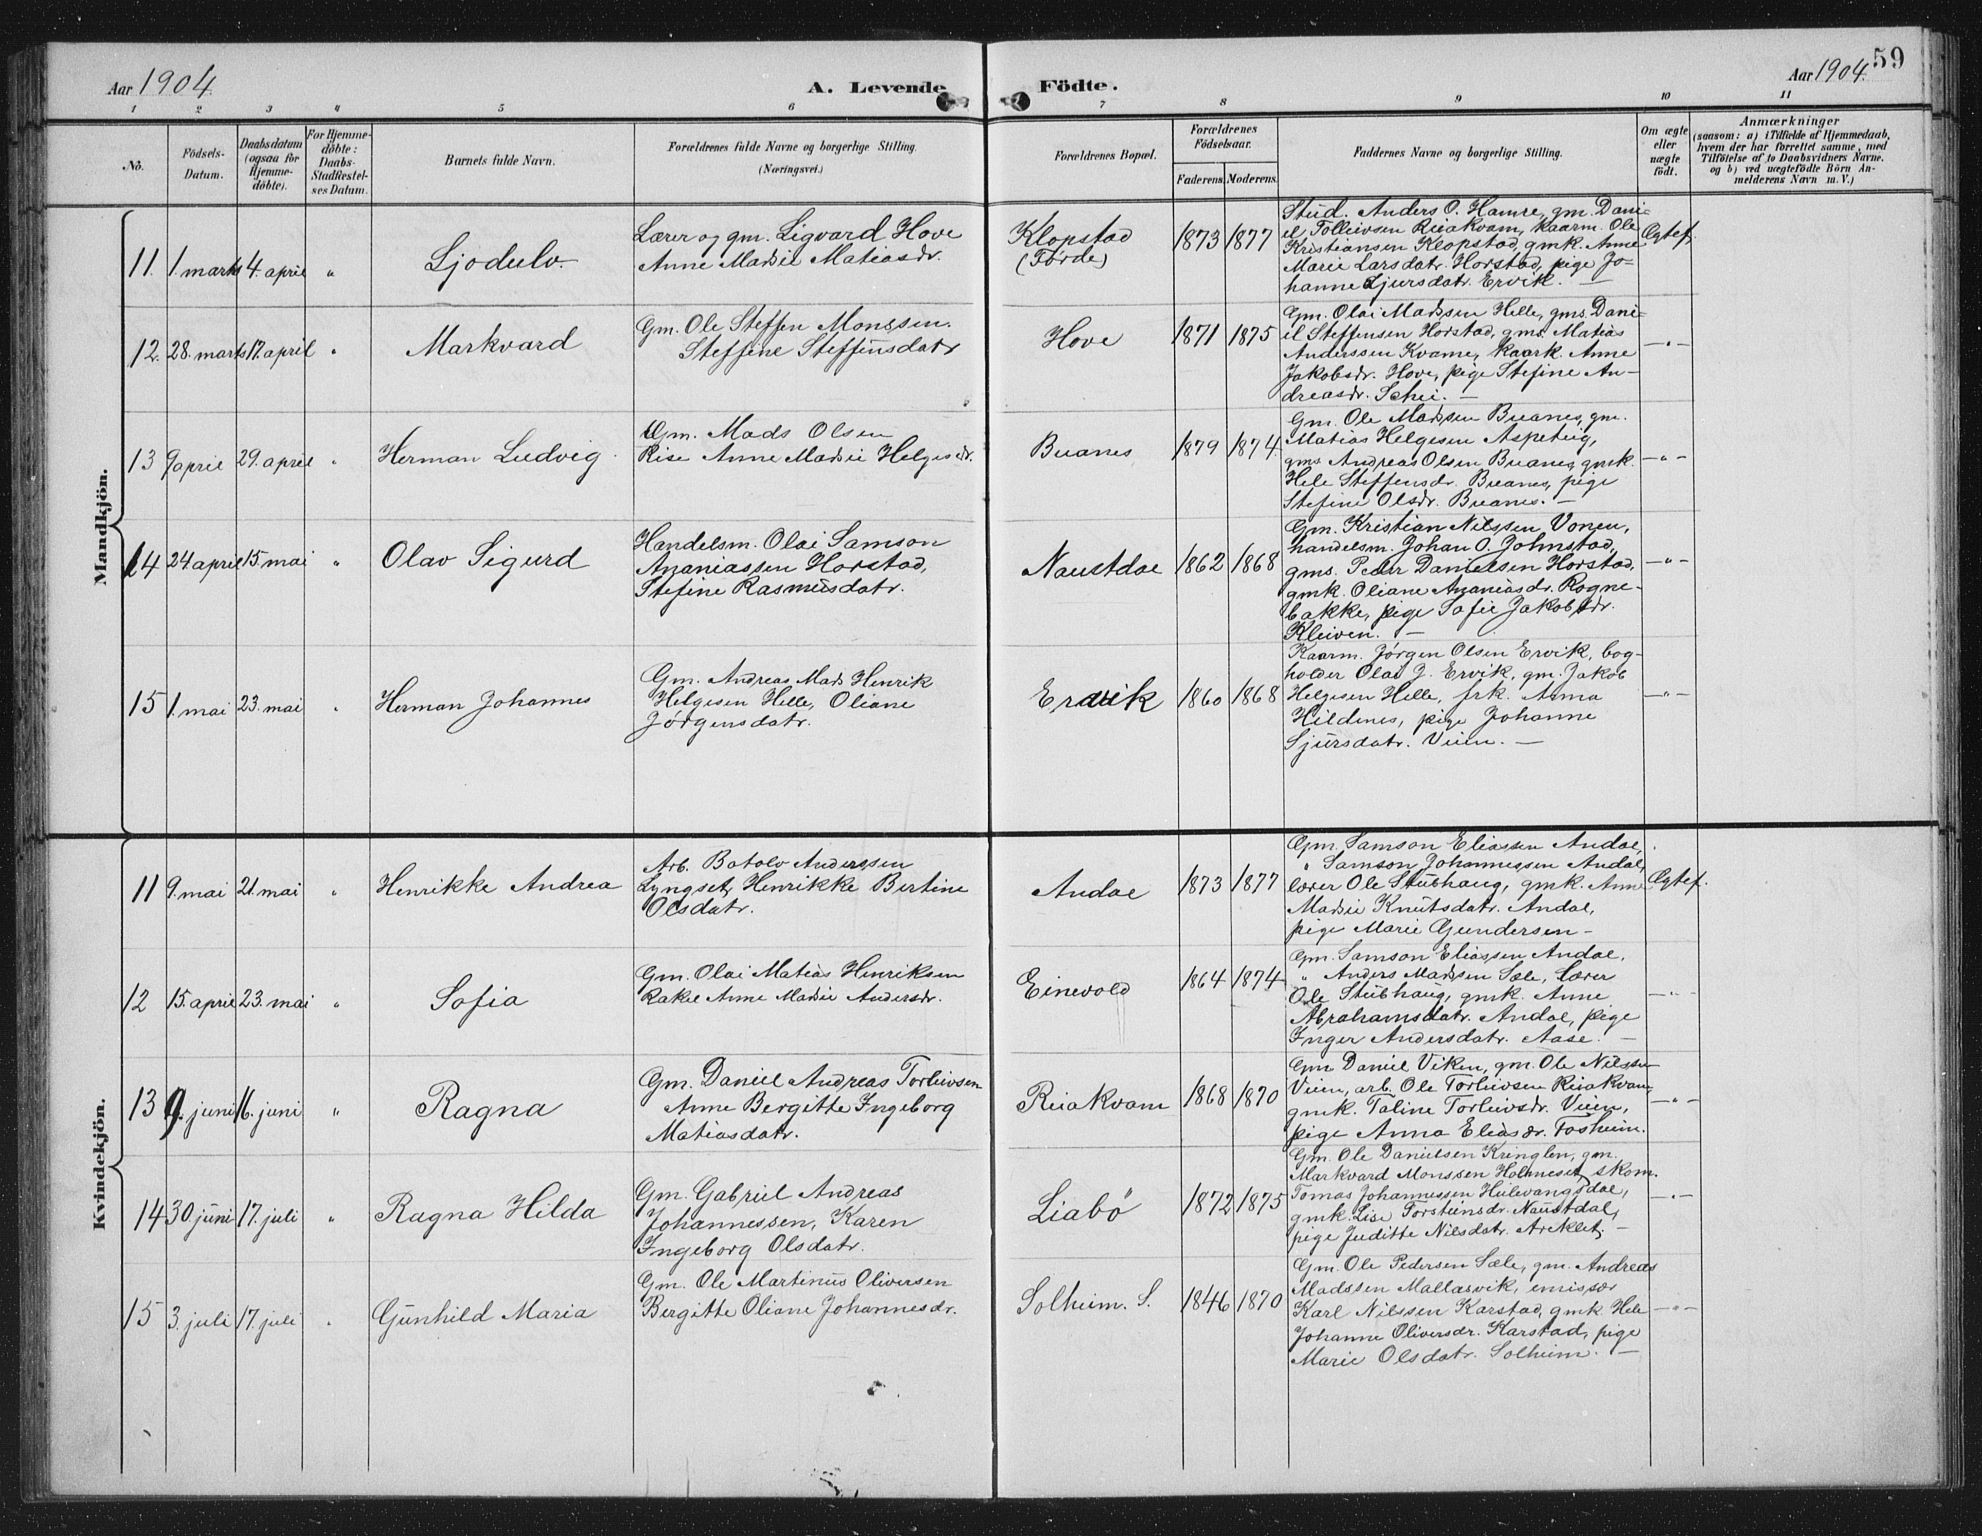 Aar 1904.
A. Levende
Födte.
Aar 1904.
59
1 2 3 4 5 6 7 8 9 10 11
No.
Födsels-
Datum.
Daabsdatum
(ogsaa for
Hjemme-
döbte).
For Hjemme-
döbte:
Daabs-
Stadfestel-
ses Datum.
Barnets fulde Navn.
Forældrenes fulde Navne og borgerlige Stilling.
(Næringsvei.)
Forældrenes Bopæl.
Forældrenes
Födselsaar.
Faderens. Moderens.
Faddernes Navne og borgerlige Stilling.
Om ægte
eller
uægte
født.
Anmærkninger
(saasom: a) i Tilfælde af Hjemmedaab,
hvem der har forrettet samme, med
Tilföielse af to Daabsvidners Navne.
og b) ved uægtefödte Börn An-
melderens Navn m. V.)
Mandkjön.
11. 1 marts 4. april " Ljodulv.
Lærer og gm. Sigvard Hove
Anne Madsii Matiasdr.
Klopstad
(Førde)
1873 1877
Stud. Anders O. Hamre, gm. Dani-
el Tolleivsen Reiakvam, kaarm. Ole
Kristiansen Klopstad, gmk. Anne
Marie Larsdatr. Horstad, pige Jo-
hanne Sjursdatr. Ervik. —
Ægtef.
12. 28. marts 17. april " Markvard
Gm. Ole Steffen Monssen.
Steffine Steffensdatr
Hove
1871 1875
Gm. Olai Madssen Helle, gms. Dani-
el Steffensen Horstad, gms. Matias
Anderssen Kvame, kaark. Anne
Jakobsdr. Hove, pige Stefine An-
dreasdr. Schei. —
—"—
13 9 april 29. april " Herman Ludvig
Gm. Mads Olsen
Anne Madsii Helgesdr.
Buanes
1879 1874
Gm. Ole Madsen Buanes, gm.
Matias Helgesen Aspeteig,
gms. Andreas Olsen Buanes, gmk.
Hele Steffensdr. Buanes, pige
Stefine Olsdr. Buanes. —
—"—
14 24 april 15. mai " Olav Sigurd
Handelsm. Olai Samson
Ananiassen Horstad,
Stefine Rasmusdatr.
Naustdal
1862 1868
Gm. Kristian Nilssen Vonen,
handelsm. Johan O. Johnstad,
gms. Peder Danielsen Horstad,
gmk. Oliane Ananiasdr. Rogne-
bakke, pige Sofie Jakobsdr.
Kleiven. —
—"—
15 1. mai 23. mai " Herman Johannes
Gm. Andreas Mads Henrik
Helgesen Helle, Oliane
Jørgensdatr.
Ervik
1860 1868
Kaarm. Jørgen Olsen Ervik, bog-
holder Olai J. Ervik, gm. Jakob
Helgesen Helle, frk. Anna
Hildenes, pige Johanne
Sjursdatr. Vuen. —
—"—
Kvindekjön.
11 9. mai 21. mai " Henrikke Andrea
Arb. Botolv Anderssen
Lyngset, Henrikke Bertine
Olsdatr.
Andal
1873 1877
Gm. Samson Eliassen Andal,
" Samson Johannessen Andal,
lærer Ole Stubhaug, gmk. Anne
Madsii Knutsdatr. Andal,
pige Marie Gundersen —
Ægtef.
12 15. april 23. mai " Sofia
Gm. Olai Matias Henriksen
Rakel Anne Madsii Andersdr.
Einevold
1864 1874
Gm. Samson Eliassen Andal,
" Anders Madssen Sæle, Lærer
Ole Stubhaug, gmk. Anne
Abrahamsdatr. Andal, pige
Inger Andersdatr. Aase. —
—"—
13 9. juni 16. juni " Ragna
Gm. Daniel Andreas Torleivsen
Anne Bergitte Ingeborg
Matiasdatr.
Reiakvam
1868 1870
Gm Daniel Viken, gm. Ole Nilssen
Vuen, arb. Ole Torleivsen Reiakvam,
gmk. Taline Torleivsdr. Vuen,
pige Anna Eliasdr. Tosheim.
—"—
14 30. juni 17. juli " Ragna Hilda
Gm. Gabriel Andreas
Johannessen, Karen
Ingeborg Olsdatr.
Liabö
1872 1875
Gm. Ole Danielsen Kringlen, gm.
Markvard Monssen Holmeset, skom.
Tomas Johannessen Hulevangsdal,
gmk. Lise Torsteinsdr. Naustdal,
pige Juditte Nilsdatr. Areklet. —
—"—
15 3. juli 17. juli " Gunhild Maria
Gm. Ole Martinus Oliversen
Bergitte Oliane Johannesdr.
Solheim. S.
1846 1870
Gm. Ole Pedersen Sæle, gm. Andreas
Madssen Mallasvik, emissær
Karl Nilssen Karstad, gmk Hele
Johanne Oliversdr. Karstad, pige
Marie Olsdatr. Solheim. —
—"—